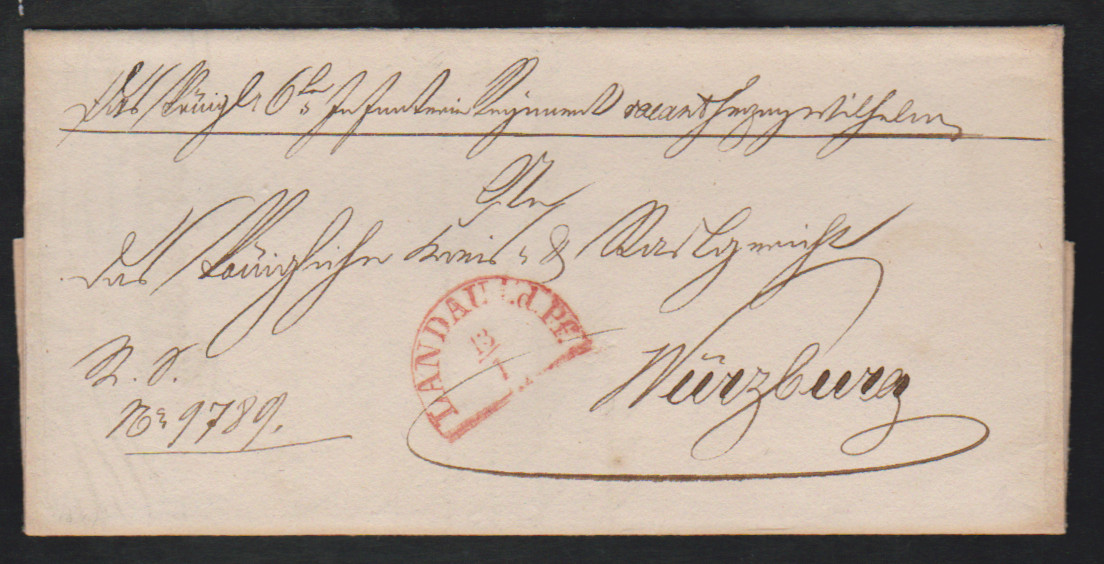 Das Königl. 6te Infanterie Regiment vacant Herzog Wilhelm
An
das Königliche Kreis- & Stadtgericht
LANDAU i.d.Pf.
13
1
Würzburg
R. S.
No 9789.